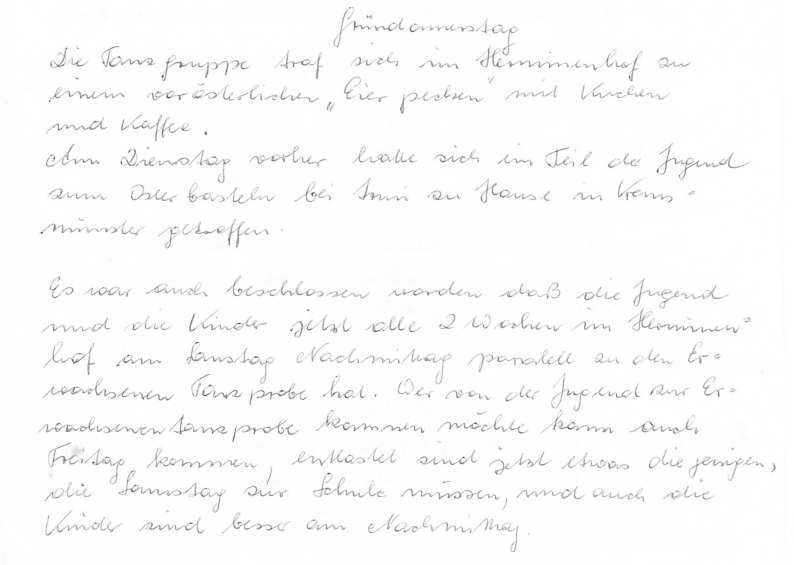 Gründonnerstag
Die Tanzgruppe traf sich im Herminenhof zu
einem vorösterlichen „Eier pecken" mit Kuchen
und Kaffee.
Am Dienstag vorher hatte sich ein Teil der Jugend
zum Osterbasteln bei zu Hause in Krems-
münster getroffen.
Es war auch beschlossen worden daß die Jugend
und die Kinder jetzt alle 2 Wochen im Herminen-
hof am Samstag Nachmittag paralell zu den Er-
wachsenen Tanzprobe hat. Wer von der Jugend zur Er-
wachsenentanzprobe kommen möchte kann auch
Freitag kommen, entlastet sind jetzt etwas die jenigen,
die Samstag zur Schule müssen, und auch die
Kinder sind besser am Nachmittag.